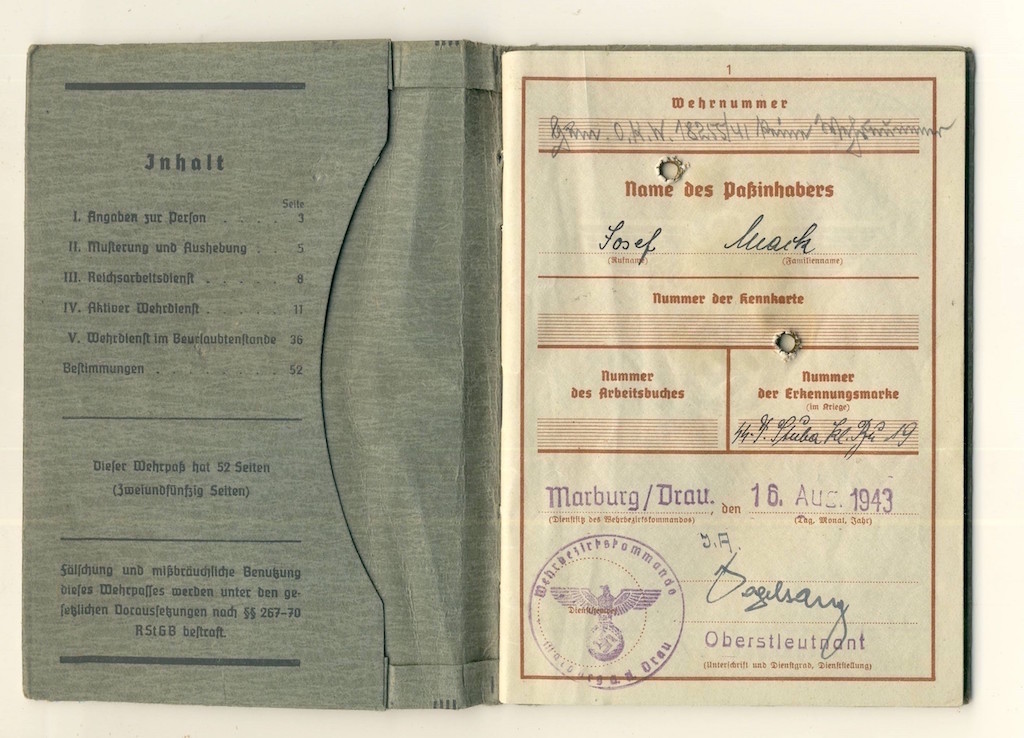 Inhalt
Seite
I. Angaben zur Person . . . . 3
II. Musterung und Aushebung . . 5
III. Reichsarbeitsdienst . . . . . 8
IV. Aktiver Wehrdienst . . . . . 11
V. Wehrdienst im Beurlaubtenstande 36
Bestimmungen . . . . . . . . 52
Dieser Wehrpaß hat 52 Seiten
(Zweiundfünfzig Seiten)
Fälschung und mißbräuchliche Benutzung
dieses Wehrpasses werden unter den ge-
setzlichen Voraussetzungen nach §§ 267-70
RStGB bestraft.
1
Wehrnummer
O.K.W. 1825/41 keine Wehrnummer
Name des Paßinhabers
Josef
(Rufname) (Familienname)
Nummer der Kennkarte
Nummer
des Arbeitsbuches
Nummer
der Erkennungsmarke
(im Kriege)
19
Marburg/Drau. den 16. AUG. 1943
(Dienstsitz des Wehrbezirkskommandos) (Tag, Monat, Jahr)
Wehrbezirkskommando
Dienststempel
Marburg a. d. Drau
J.A.
Vogelsang
Oberstleutnant
(Unterschrift und Dienstgrad, Dienststellung)